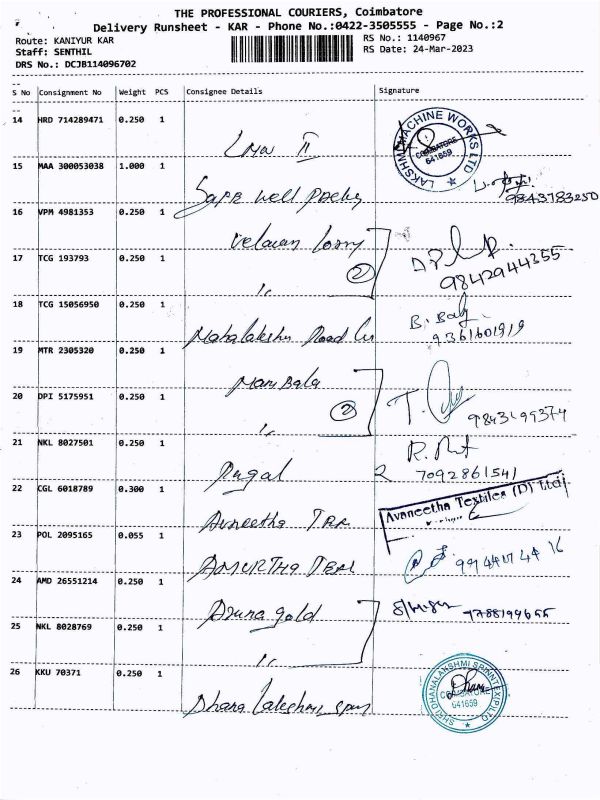 THE PROFESSIONAL COURIERS, Coimbatore
Delivery Runsheet - KAR - Phone No.:0422-3505555 - Page No.:2
Route: KANIYUR KAR
Staff: SENTHIL
DRS No.: DCJB114096702
RS No.: 1140967
RS Date: 24-Mar-2023
S No Consignment No Weight PCS Consignee Details Signature
14 HRD 714289471 0.250 1 LMW II
LAKSHMI MACHINE WORKS LTD
COIMBATORE
641659
15 MAA 300053038 1.000 1 Safe well
9843783250
16 VPM 4981353 0.250 1 Velavan
17 TCG 193793 0.250 1 " 2
9842944355
18 TCG 15056950 0.250 1 Mahalakshmi Road
B. Balaj
9361601919
19 MTR 2305320 0.250 1 Manibala
20 DPI 5175951 0.250 1 " 2
21 NKL 8027501 0.250 1 Pugal
7092861541
22 CGL 6018789 0.300 1 Avneetha Tex
Avaneetha Textiles (P) Ltd
23 POL 2095165 0.055 1 AMURTHA
24 AMD 26551214 0.250 1 Aruna gold
25 NKL 8028769 0.250 1 "
26 KKU 70371 0.250 1 Dhana lakshmi
SHRI DHANALAKSHMI SPINNTEX(P)LTD
COIMBATORE
641659